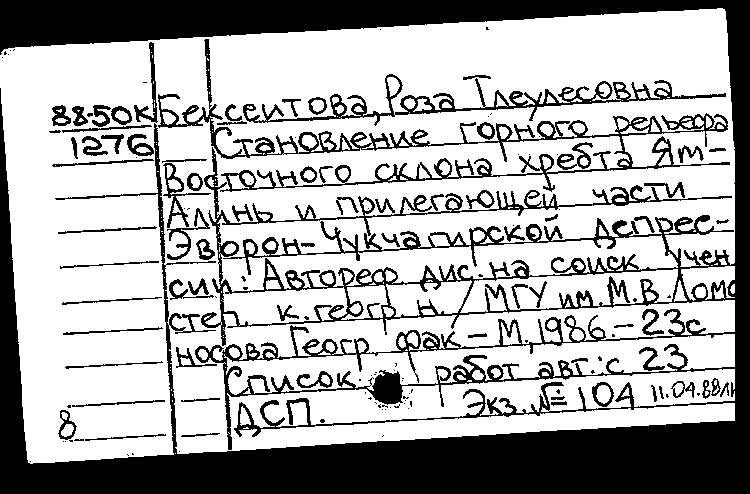 88-50к Бексеитова, Роза Тлеулесовна
1276 Становление горного рельефа
Восточного склона хребта Ям-
Алинь и прилегающей части
Эворон-Чукчагирской депрес-
сии: Автореф. дис. на соиск. учен
степ. к. геогр. н. / МГУ им. М.В. Ломо
носова Геогр. фак. – М, 1986. – 23с.
Список работ авт.: с. 23
ДСП. Экз. № 104 11.04.88
8